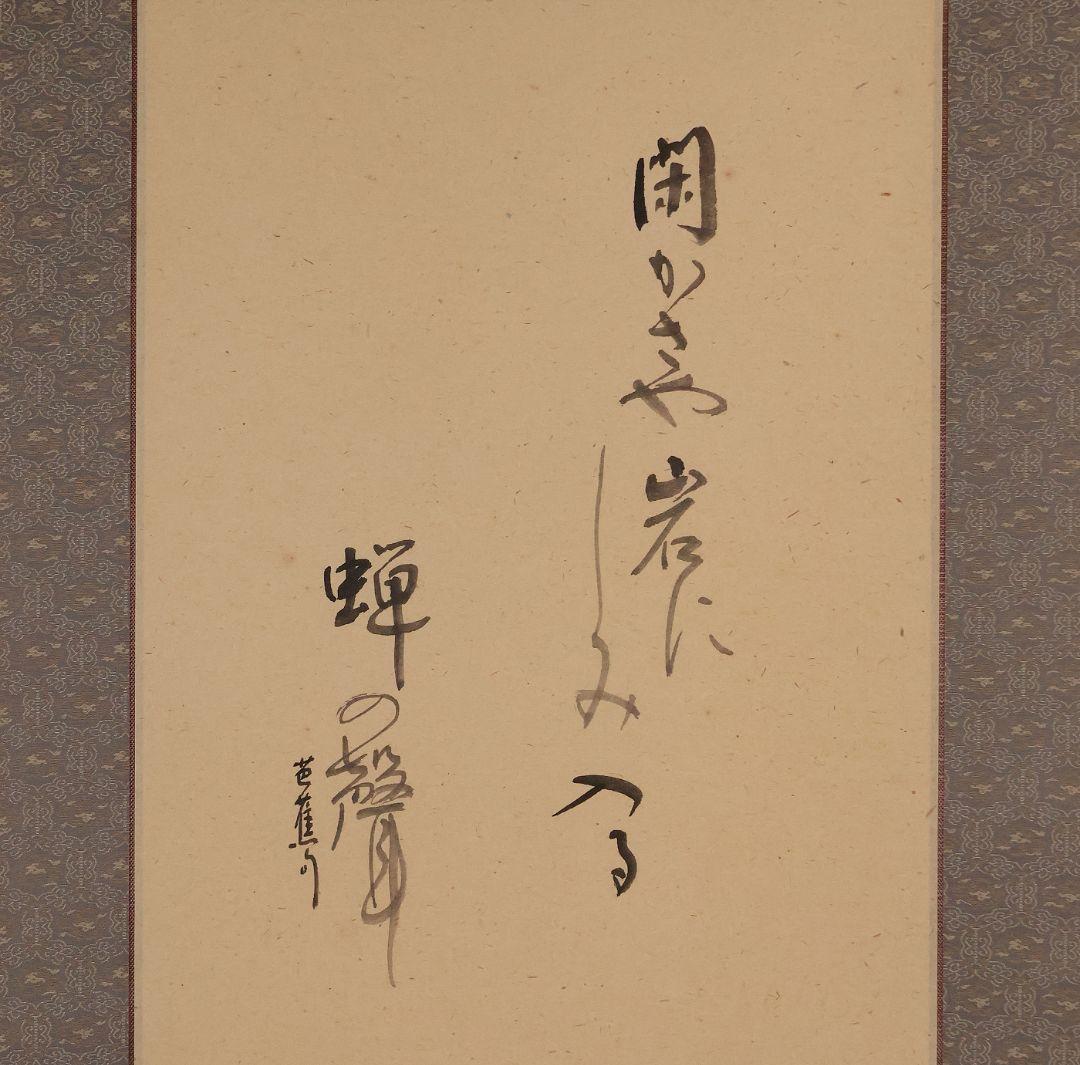 閑かさや岩に
しみ入る
蝉の聲
芭蕉句